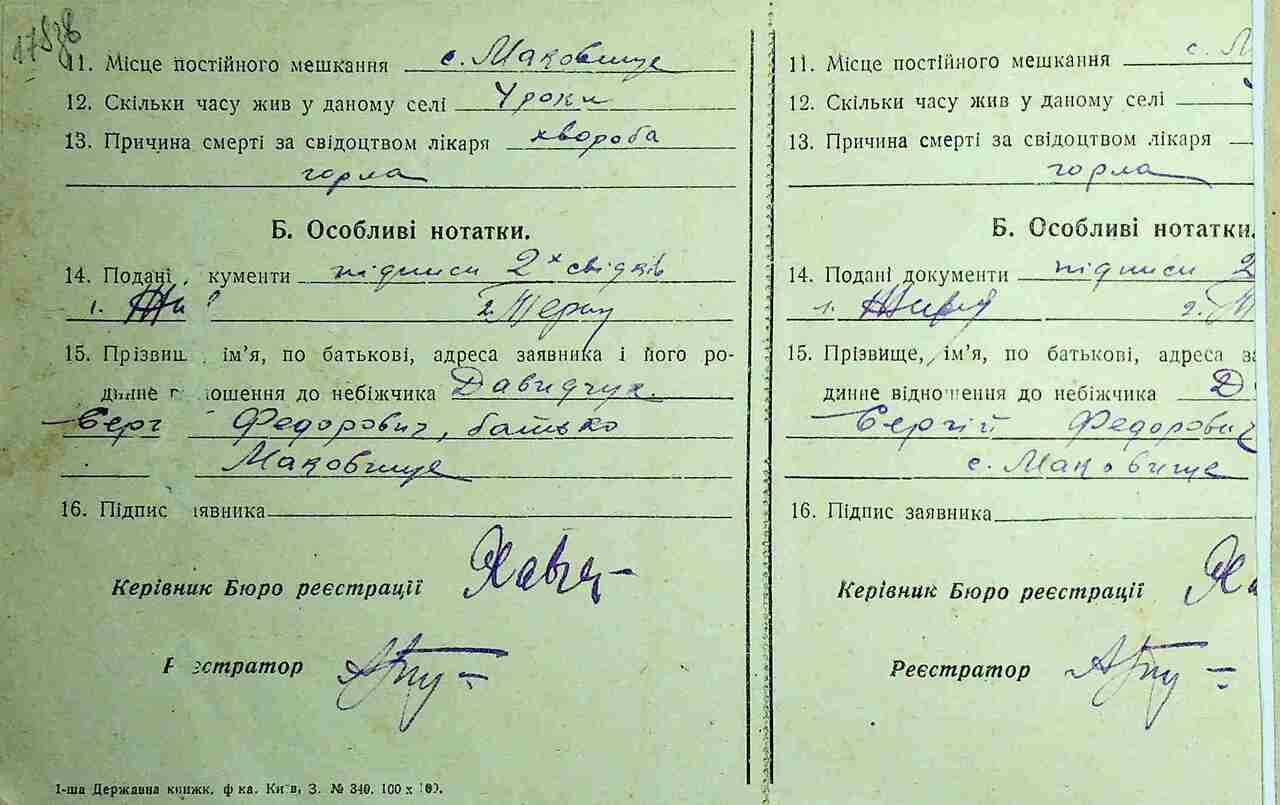 11. Місце постійного мешкання с. Маковище
12. Скільки часу жив у даному селі 4 роки
13. Причина смерті за свідоцтвом лікаря хвороба
горла
Б. Особливі нотатки.
14. Подані кументи підписи 2х свідків
1. 2.
15. Прізвищ ім'я, по батькові, адреса заявника і його ро-
динне ошення до небіжчика Давидчук.
Серг Федорович, батько
Маковище
16. Підпис явника
Керівник Бюро реєстрації
Р єстратор
1-ша Державна книжк. ф ка. Київ, З. № 340. 100 х 100.
11. Місце постійного мешкання с. М
12. Скільки часу жив у даному селі
13. Причина смерті за свідоцтвом лікаря
горла
Б. Особливі нотатки.
14. Подані документи підписи 2
1. 2.
15. Прізвище, ім'я, по батькові, адреса за
динне відношення до небіжчика Д
Сергій Федорович
с. Маковище
16. Підпис заявника
Керівник Бюро реєстрації
Реєстратор